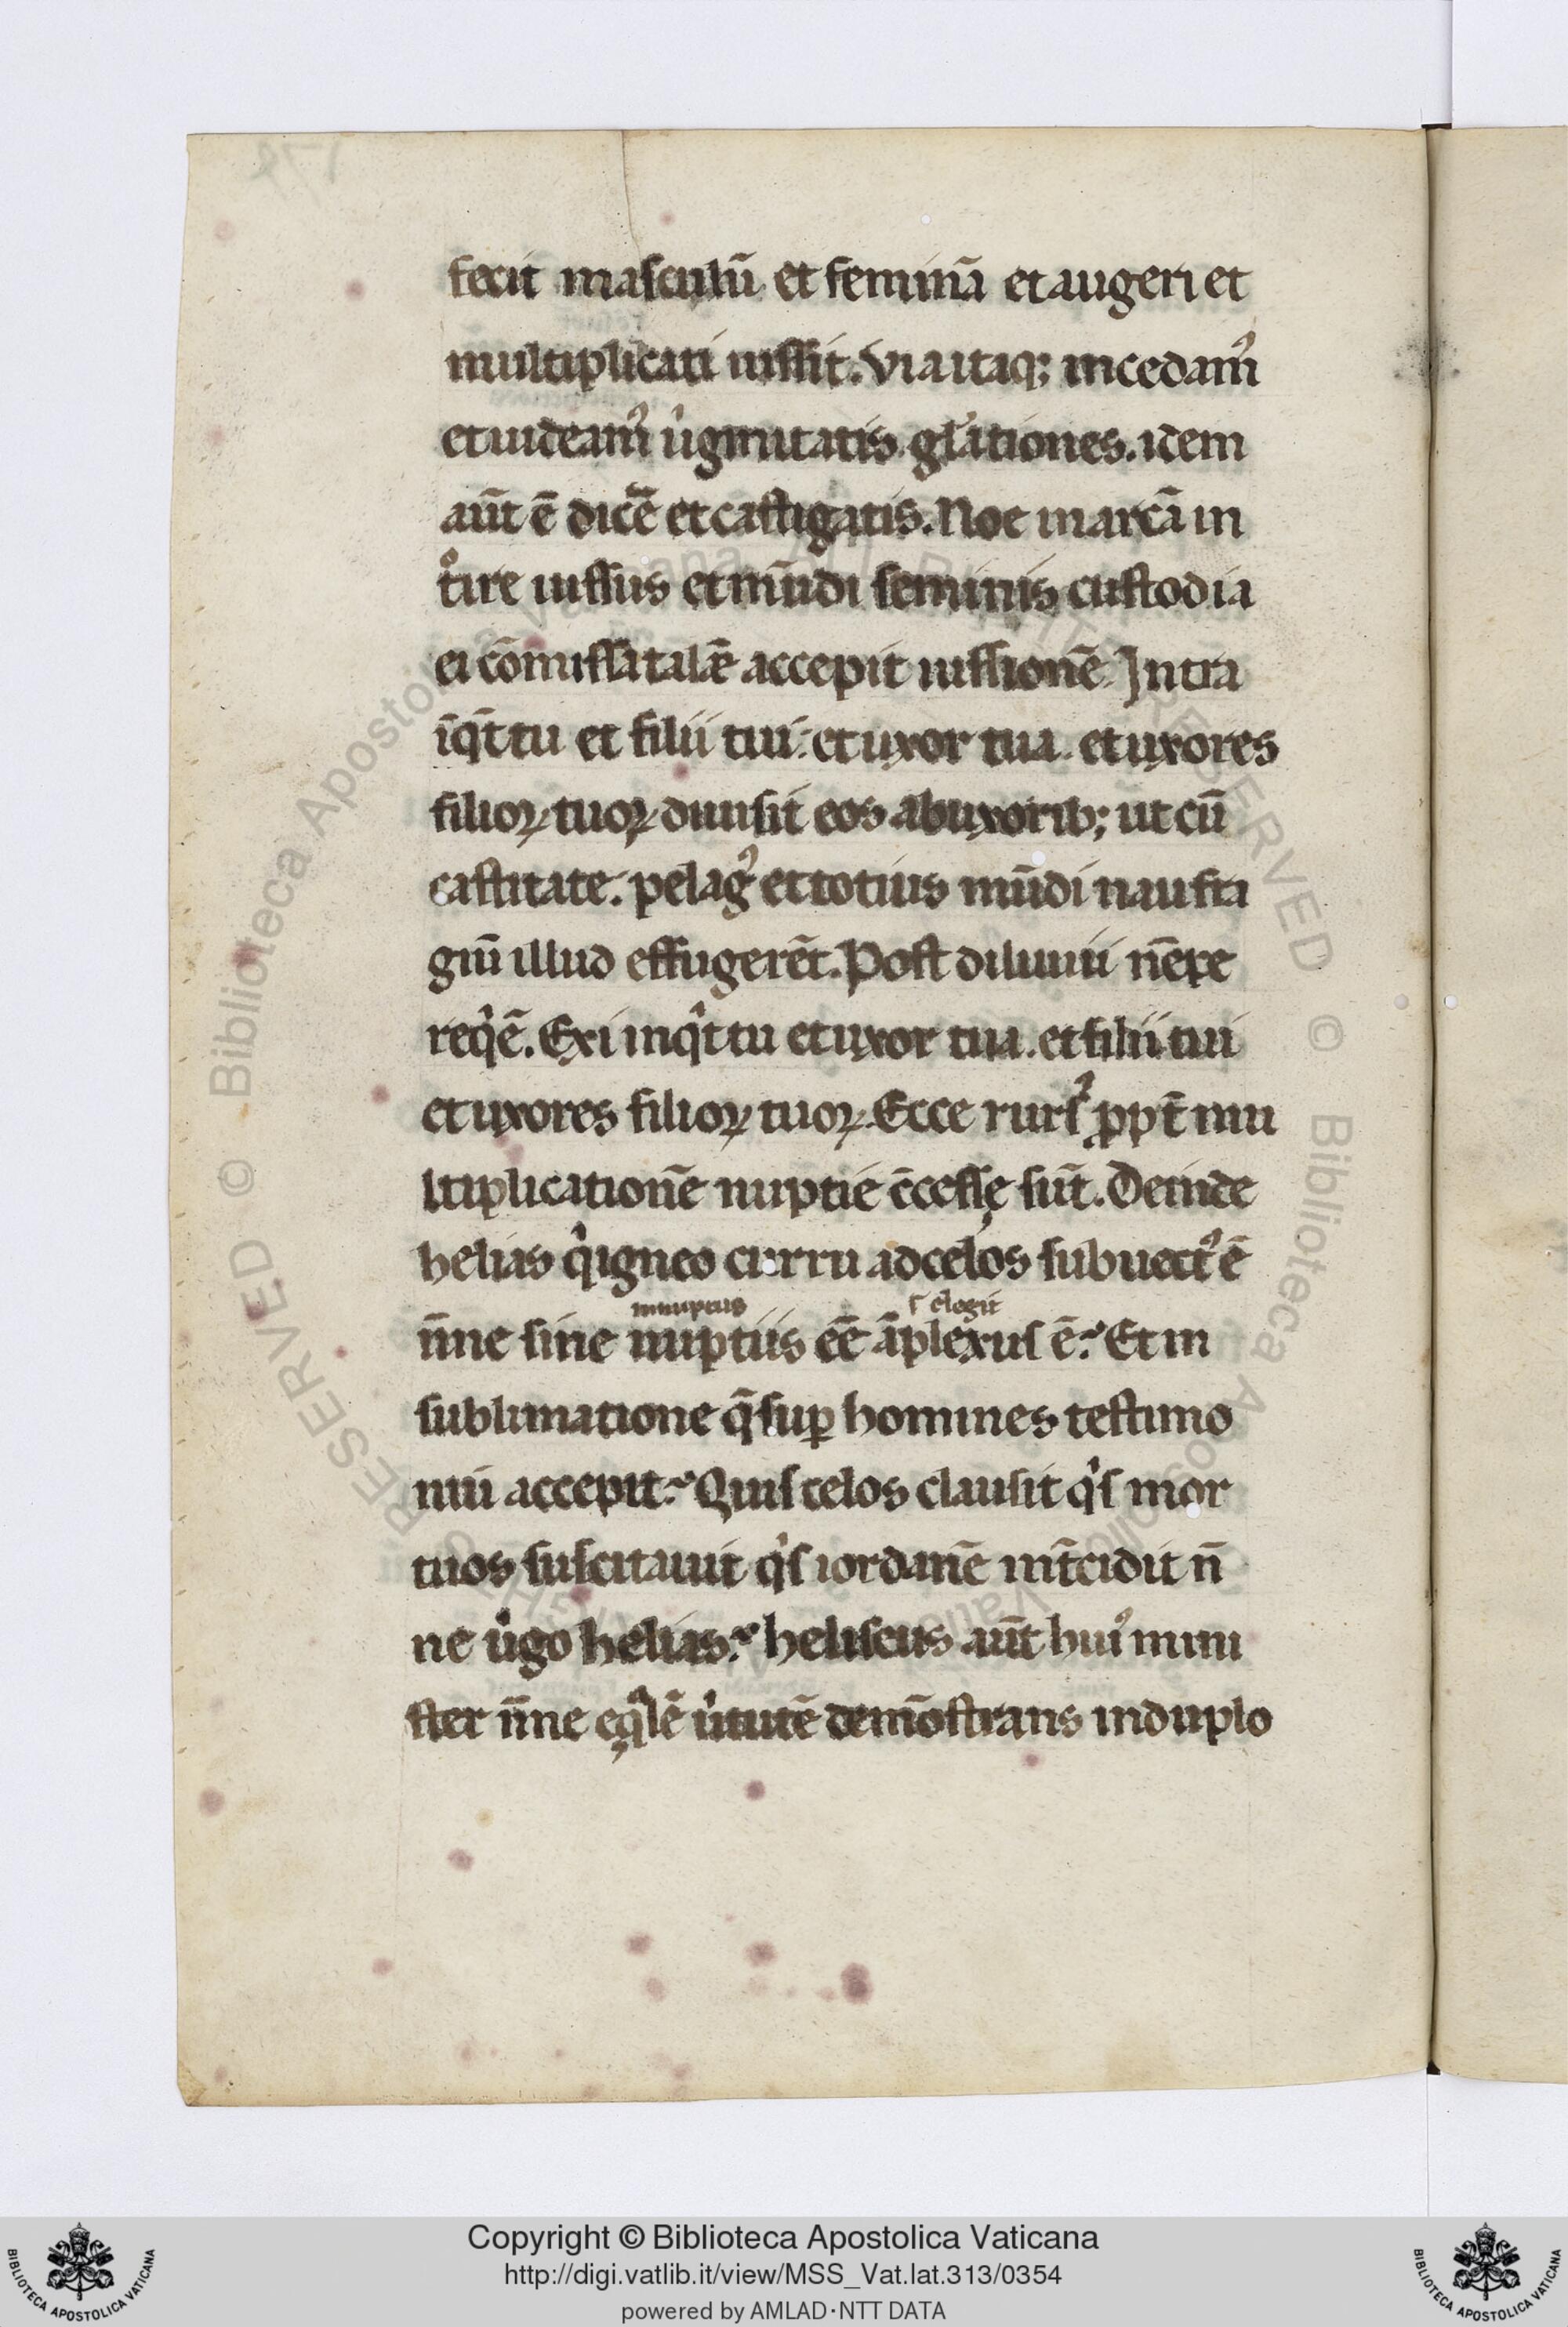 fecit masculū et feminā et augeri et
multiplicati iussit. Via itaq; incedam᷒
et uideam᷒ uͥginitatis gn̄ationes. idem
aūt ē dicē et castigatis. Noe in arcā in
tͦire iussus et mūdi seminis custodia
ei cōmissa talē accepit iussionē. Intra
īqͥt tu et filii tui. et uxor tua. et uxores
filioꝝ tuoꝝ diuisit eos ab uxorib; ut cū
castitate. pelag᷒ et totius mūdi naufra
giū illud effugerēt. Post diluuii nēpe
reqͥē. Exi inqͥt tu et uxor tua. et filii tui
et uxores filioꝝ tuoꝝ. Ecce rurs᷒ ꝓpt̄ mu
ltiplicationē nuptie c̄cessę sūt. Deinde
helias qͥ igneo curru ad celos subuect᷒ ē
innuptus elegit
n̄ne sine nuptiis eē āplexus ē? Et in
sublimatione q̄ suꝑ homines testimo
niū accepit? Quis celos clausit qͥs mor
tuos suscitauit qͥs iordanē int̄cidit n̄
ne uͥgo helias? heliseus aūt hui᷒ mini
ster n̄ne eqͣlē uͥtutē demōstrans in duplo
© Biblioteca Apostolica Vaticana
Copyright © Biblioteca Apostolica Vaticana
http://digi.vatlib.it/view/MSS_Vat.lat.313/0354
powered by AMLAD·NTT DATA
BIBLIOTECA APOSTOLICA VATICANA
BIBLIOTECA APOSTOLICA VATICANA